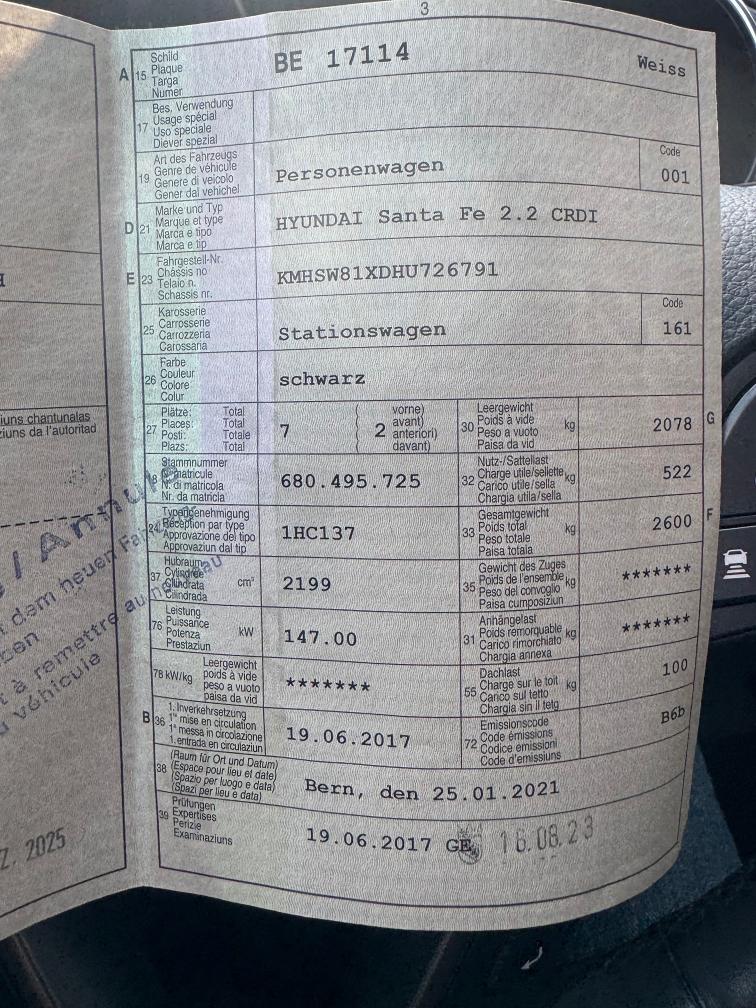 3
A 15 Schild
Plaque
Targa
Numer
BE 17114 Weiss
17 Bes. Verwendung
Usage spécial
Uso speciale
Diever spezial
19 Art des Fahrzeugs
Genre de véhicule
Genere di veicolo
Gener dal vehichel
Personenwagen
Code
001
D 21 Marke und Typ
Marque et type
Marca e tipo
Marca e tip
HYUNDAI Santa Fe 2.2 CRDI
E 23 Fahrgestell-Nr.
Châssis no
Telaio n.
Schassis nr.
KMHSW81XDHU726791
25 Karosserie
Carrosserie
Carrozzeria
Carossaria
Stationswagen
Code
161
26 Farbe
Couleur
Colore
Colur
schwarz
27 Plätze: Total
Places: Total
Posti: Totale
Plazs: Total
7 ( 2 vorne)
avant)
anteriori)
davant)
30 Leergewicht
Poids à vide
Peso a vuoto
Paisa da vid
kg
2078 G
Stammnummer
N. di matricola
Nr. da matricla
680.495.725
32 Nutz-/Sattellast
Charge utile/sellette
Carico utile/sella
Chargia utila/sella
kg
522
24 Typengenehmigung
Réception par type
Approvazione del tipo
Approvaziun dal tip
1HC137
33 Gesamtgewicht
Poids total
Peso totale
Paisa totala
kg
2600 F
37 Hubraum
Cylindrée
Cilindrata
Cilindrada
cm³
2199
35 Gewicht des Zuges
Poids de l'ensemble
Peso del convoglio
Paisa cumposiziun
kg
*******
76 Leistung
Puissance
Potenza
Prestaziun
kW
147.00
31 Anhängelast
Poids remorquable
Carico rimorchiato
Chargia annexa
kg
*******
78 kW/kg Leergewicht
poids à vide
peso a vuoto
paisa da vid
*******
55 Dachlast
Charge sur le toit
Carico sul tetto
Chargia sin il tetg
kg
100
B 36 1. Inverkehrsetzung
1re mise en circulation
1a messa in circolazione
1. entrada en circulaziun
19.06.2017
72 Emissionscode
Code émissions
Codice emissioni
Code d'emissiuns
B6b
38 (Raum für Ort und Datum)
(Espace pour lieu et date)
(Spazio per luogo e data)
(Spazi per lieu e data)
Bern, den 25.01.2021
39 Prüfungen
Expertises
Perizie
Examinaziuns
19.06.2017 GE 16.08.23
iuns chantunalas
ziuns da l'autoritad
/ Annulé
dem neuen
à remettre au
véhicule
Z. 2025